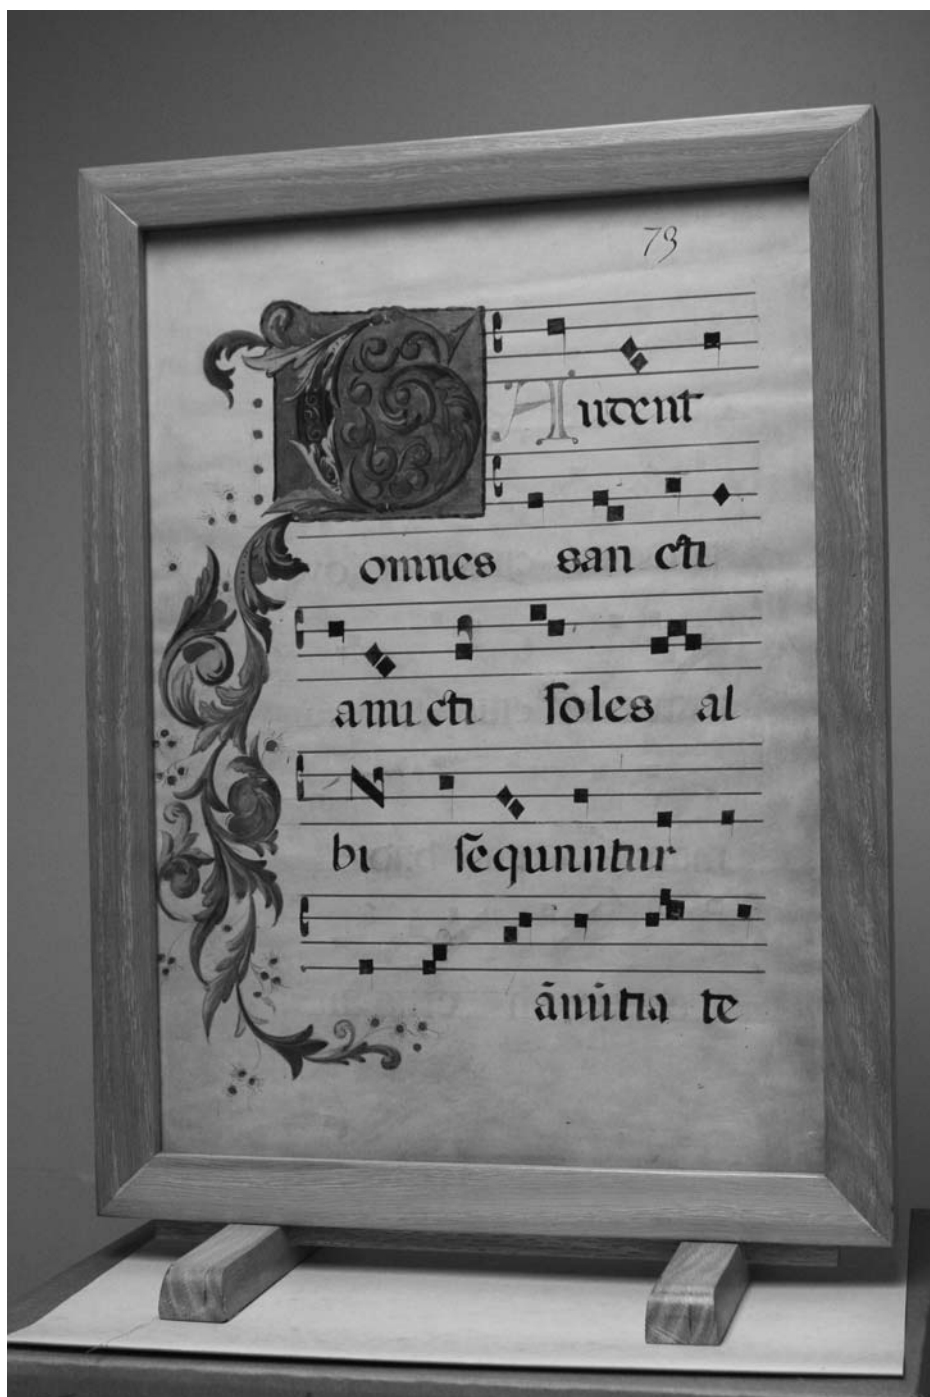 79
GAudent
omnes san cti
ami cti soles al
bi sequuntur
ānūtia te